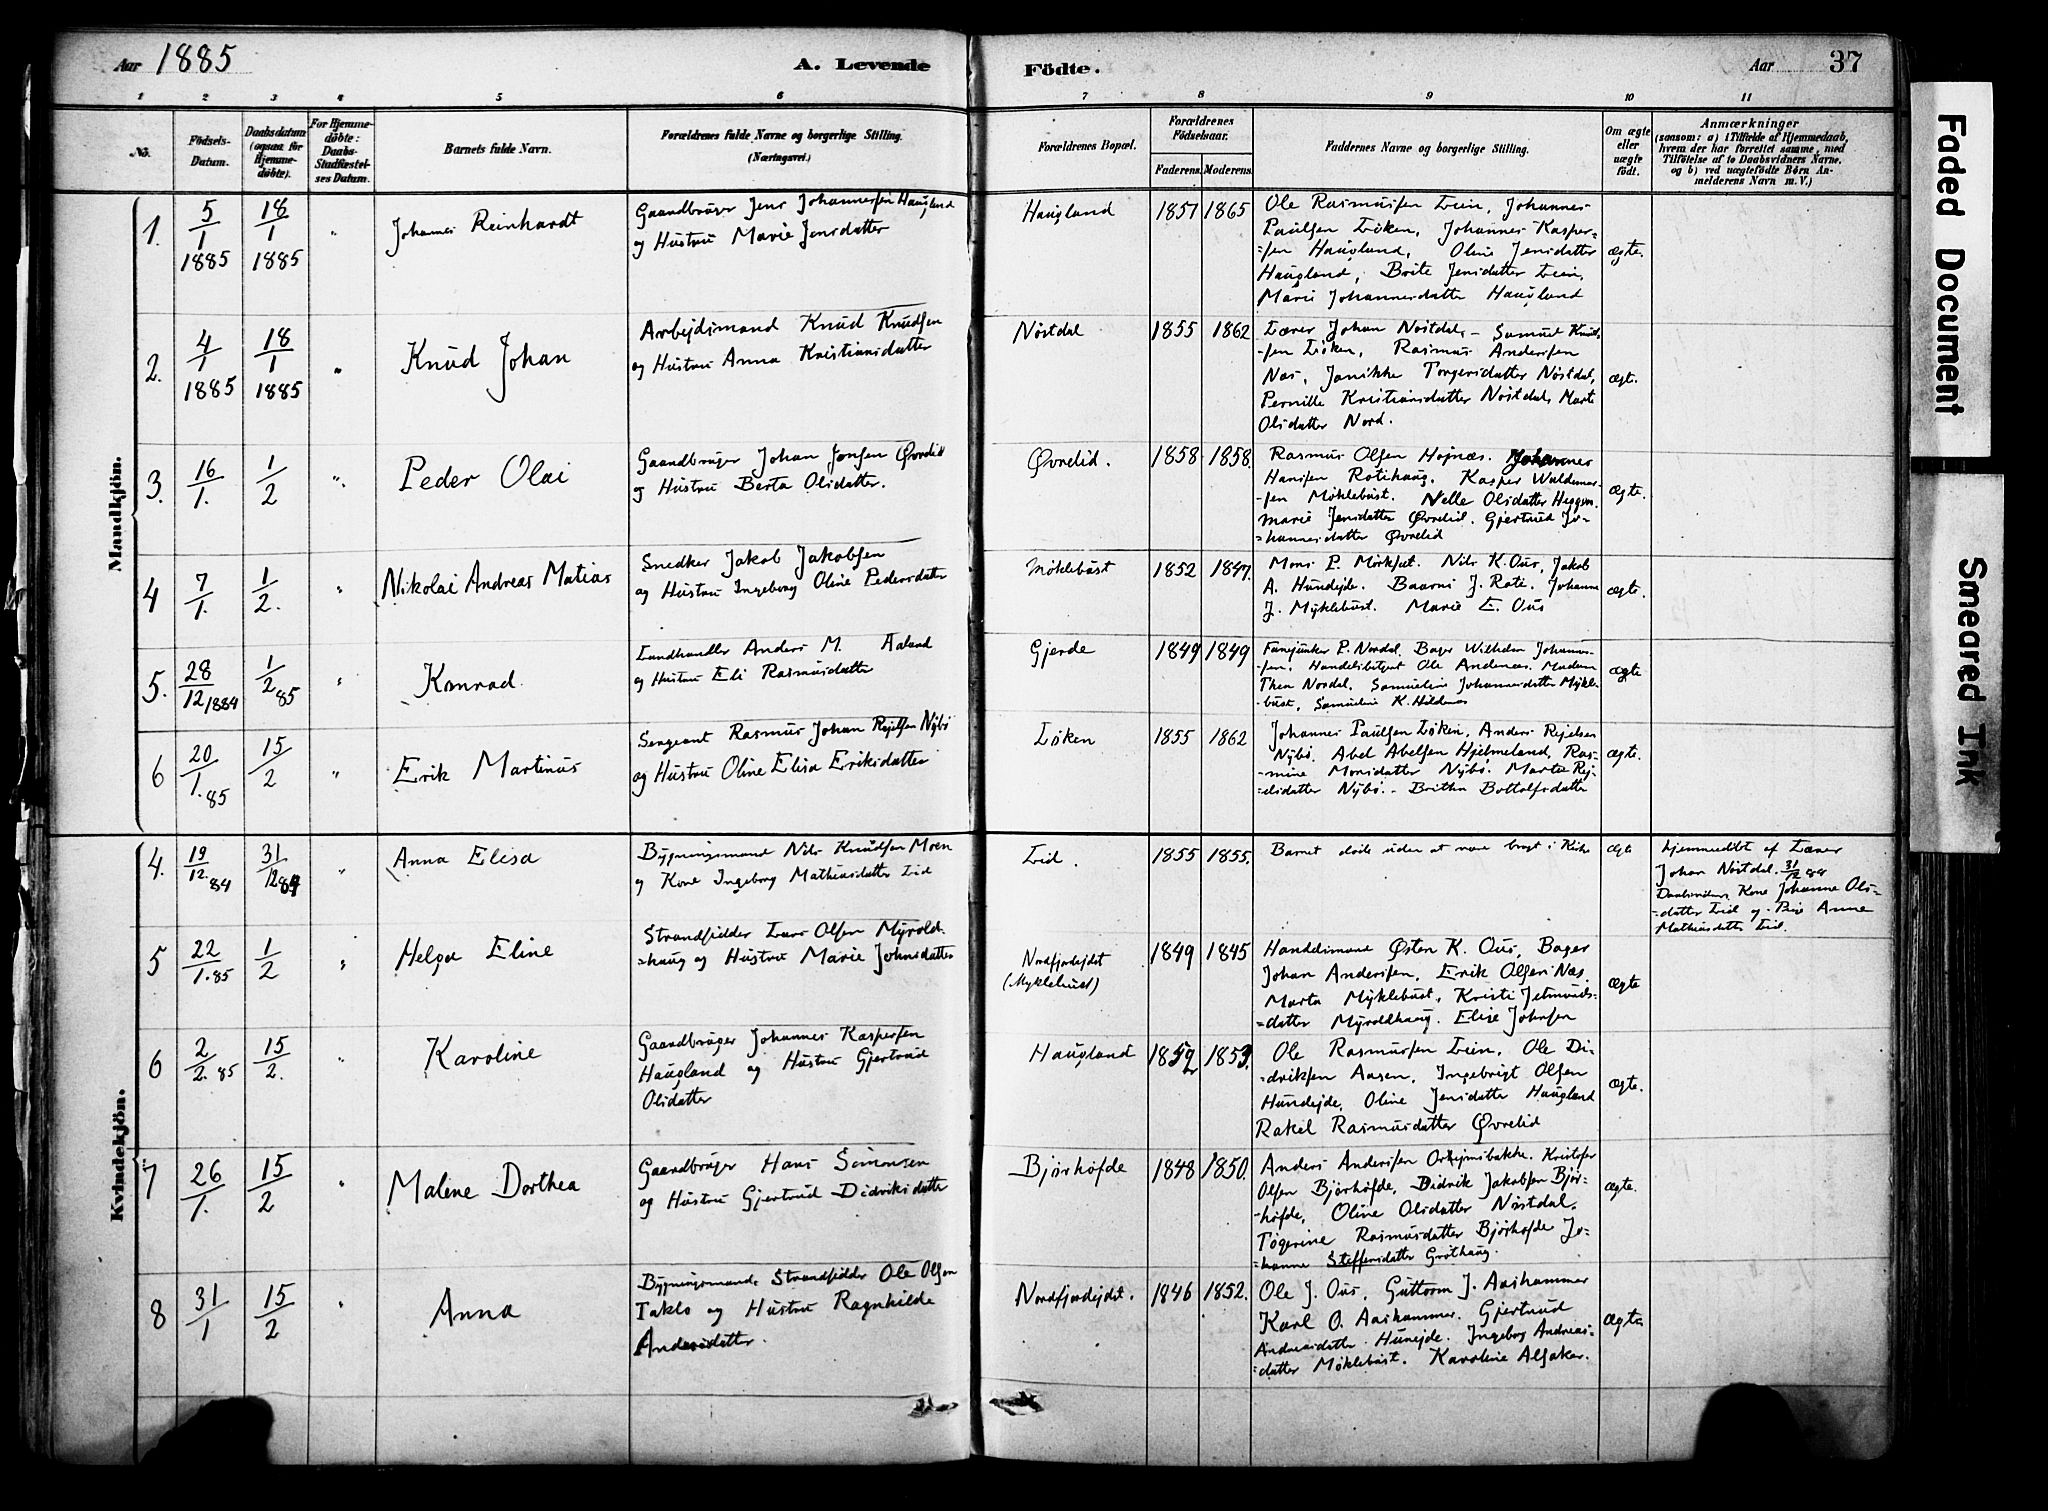 Aar 1885
A. Levende
Födte.
Aar
37
1 2 3 4 5 6 7 8 9 10 11
No.
Födsels-
Datum.
Daabsdatum
(ogsaa for
Hjemme-
døbte).
For Hjemme-
døbte:
Daabs-
Stadfæstel-
ses Datum.
Barnets fulde Navn.
Forældrenes fulde Navne og borgerlige Stilling.
(Næringsvei.)
Forældrenes Bopæl.
Forældrenes
Födselsaar.
Faderens.
Moderens.
Faddernes Navne og borgerlige Stilling.
Om ægte
eller
uægte
födt.
Anmærkninger
(saasom: a) i Tilfælde af Hjemmedaab,
hvem der har forrettet samme, med
Tilföielse af to Daabsvidners Navne.
og b) ved uægtefödte Børn An-
melderens Navn m. V.)
Mandkjön.
1. 5/1 1885 18/1 1885 " Johannes Reinhardt
Gaardbruger Jens Johannessen Haugland
og Hustru Marie Jensdatter
Haugland 1851 1865
Ole Rasmussen Lein, Johannes
Paulsen Løken, Johannes Kasper-
=sen Haugland, Oline Jensdatter
Haugland, Brite Jensdatter Lein,
Marie Johannesdatter Haugland
ægte.
2. 4/1 1885 18/1 1885 " Knud Johan
Arbejdsmand Knud Knudsen
og Hustru Anna Kristiansdatter
Nøstdal 1855 1862
Lærer Johan Nøstdal, Samuel Knud-
sen Løken, Rasmus Andersen
Nes, Janikke Torgersdatter Nøstdal,
Pernille Kristiansdatter Nøstdal, Marte
Olsdatter Nord.
ægte.
3. 16/1. 1/2 " Peder Olai
Gaardbruger Johan Jonsen Øvrelid
og Hustru Berta Olsdatter.
Øvrelid. 1858 1858.
Rasmus Olsen Hojnæs. Johannes
Hansen Rotihaug. Kasper Waldemar-
-sen Møklebust. Nelle Olsdatter
Marie Jensdatter Øvrelid. Gjertrud Jo-
=hannesdatter Øvrelid
ægte.
4 7/1. 1/2. " Nikolai Andreas Matias
Snedker Jakob Jakobsen
og Hustru Ingeborg Oline Pedersdatter
Møklebust 1852 1847.
Mons P. Mørkfut. Nils K. Ous, Jakob
A. Hundejde. J. Rote. Johanne
J. Myklebust. Marie E. Ous
ægte.
5. 28/12 1884 1/2 85 " Konrad
Landhandler Anders M. Aaland
og Hustru Eli Rasmusdatter
Gjerde 1849 1849
P. Nordal. Bager Wilhelm Johannes-
-sen. Ole Andenæs. Madam
Thea Nordal, Samueline Johannesdatter Mykle-
-bust, Samueline K.
ægte
6 20/1. 85 15/2 " Erik Martinus
Sergeant Rasmus Johan Rejelsen Nybø
og Hustru Oline Elisa Eriksdatter
Løken 1855 1862
Johannes Paulsen Løken, Anders Rejelsen
Nybø. Abel Abelsen Hjelmeland, Ras-
-mine Monsdatter Nybø. Marte Rej-
=elsdatter Nybø. Britha Bottolfsdatter
ægte.
Kvindekjön.
4. 19/12. 84 31/12 84 " Anna Elisa
Bygningsmand Nils Knudsen Moen
og Kone Ingeborg Mathiasdatter Lid
Lid. 1855 1855.
Barnet døde uden at være bragt i Kirke
ægte
Hjemmedøbt af Lærer
Johan Nøstdal. 31/12 84
Daabsvidner, Kone Johanne Ols-
=datter Lid og Pige Anne
Mathiasdatter Lid.
5 22/1. 85 1/2 " Helga Eline
Strandsidder Lars Olsen Myrold-
=haug og Hustru Marie Johnsdatter
Nordfjordejdet
(Myklebust)
1849 1845
Handelsmand Østen K. Ous, Bager
Johan Andersen, Erik Olsen Næs
Marta Myklebust, Kristi Jetmunds-
=datter Myroldhaug. Elise Johnsen
ægte
6 2/2. 85 15/2. " Karoline
Gaardbruger Johannes Kaspersen
Haugland og Hustru Gjertrud
Olsdatter
Haugland 1852 1853.
Ole Rasmussen Lein. Ole Di-
=driksen Aasen, Ingebrigt Olsen
Hundejde, Oline Jensdatter Haugland
Rakel Rasmusdatter Øvrelid
ægte.
7 26/1. 15/2 " Malene Dorthea
Gaardbruger Hans Simonsen
og Hustru Gjertrud Didriksdatter
Bjørhofde 1848 1850.
Anders Andersen Kristofer
Olsen Bjørhofde, Didrik Jakobsen Bjør-
-hofde, Oline Olsdatter Nøstdal,
Tøgerine Rasmusdatter Bjørhofde Jo-
=hanne Steffensdatter Grothaug.
ægte.
8 31/1 15/2 " Anna
Bygningsmand, Strandsidder Ole Olsen
Taklo og Hustru Ragnhilde
Andersdatter.
Nordfjordejdet. 1846 1852.
Ole J. Ous, Guttorm J. Aashammer
Karl O. Aashammer. Gjertrud
Andreasdatter Hunejde. Ingeborg Andreas-
=datter Møklebust. Karoline Alsaker.
ægte
Faded Document
Smeared Ink